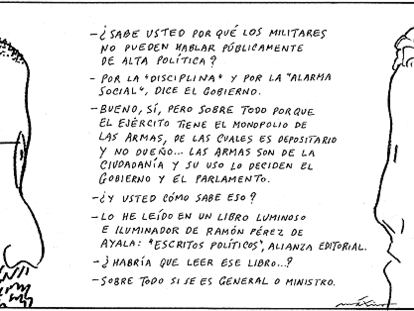 -¿SABE USTED POR QUÉ LOS MILITARES
NO PUEDEN HABLAR PÚBLICAMENTE
DE ALTA POLÍTICA?
-POR LA "DISCIPLINA" Y POR LA "ALARMA
SOCIAL", DICE EL GOBIERNO.
-BUENO, SÍ, PERO SOBRE TODO PORQUE
EL EJÉRCITO TIENE EL MONOPOLIO DE
LAS ARMAS, DE LAS CUALES ES DEPOSITARIO
Y NO DUEÑO... LAS ARMAS SON DE LA
CIUDADANÍA Y SU USO LO DECIDEN EL
GOBIERNO Y EL PARLAMENTO.
-¿Y USTED CÓMO SABE ESO?
-LO HE LEÍDO EN UN LIBRO LUMINOSO
E ILUMINADOR DE RAMÓN PÉREZ DE
AYALA: "ESCRITOS POLÍTICOS", ALIANZA EDITORIAL.
-¿HABRÍA QUE LEER ESE LIBRO...?
-SOBRE TODO SI SE ES GENERAL O MINISTRO.
máximo